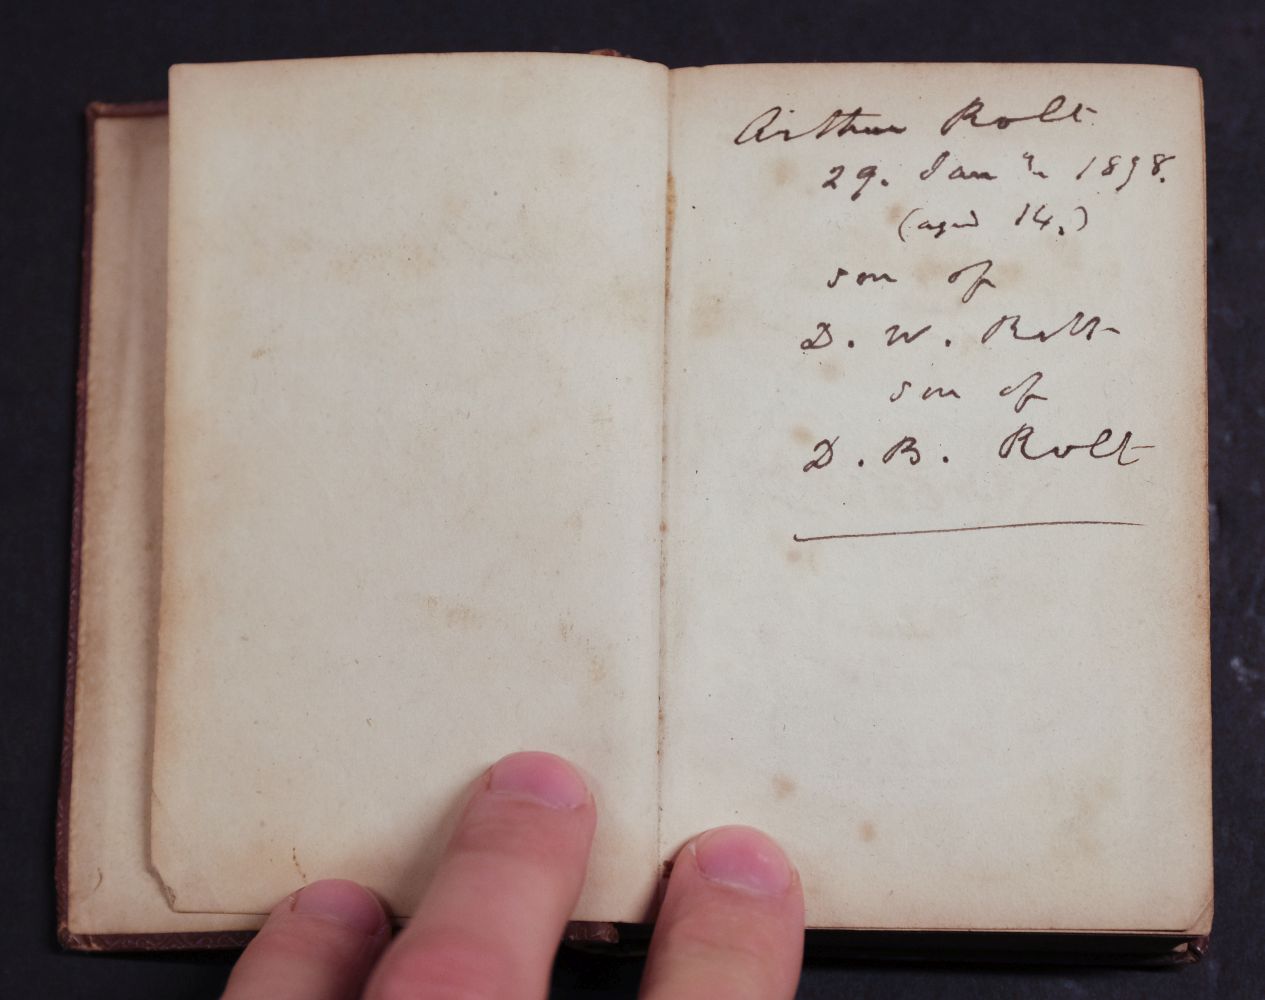 Arthur Rolt
29. Jan^y 1898.
(aged 14.)
son of
D. W. Rolt
son of
D. B. Rolt